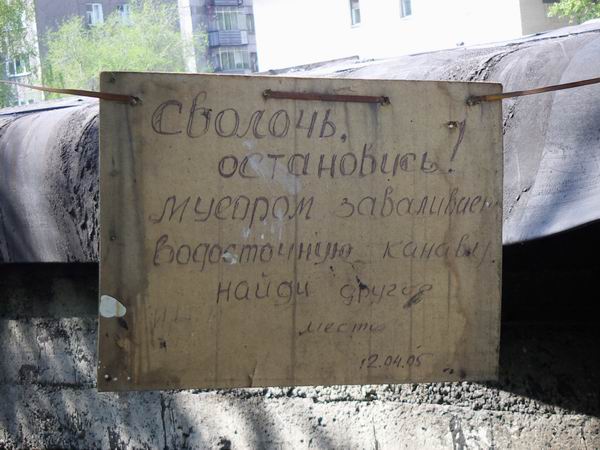 Сволочь,
остановись!
мусором заваливаем
водосточную канаву
найди другое
место
12.04.05